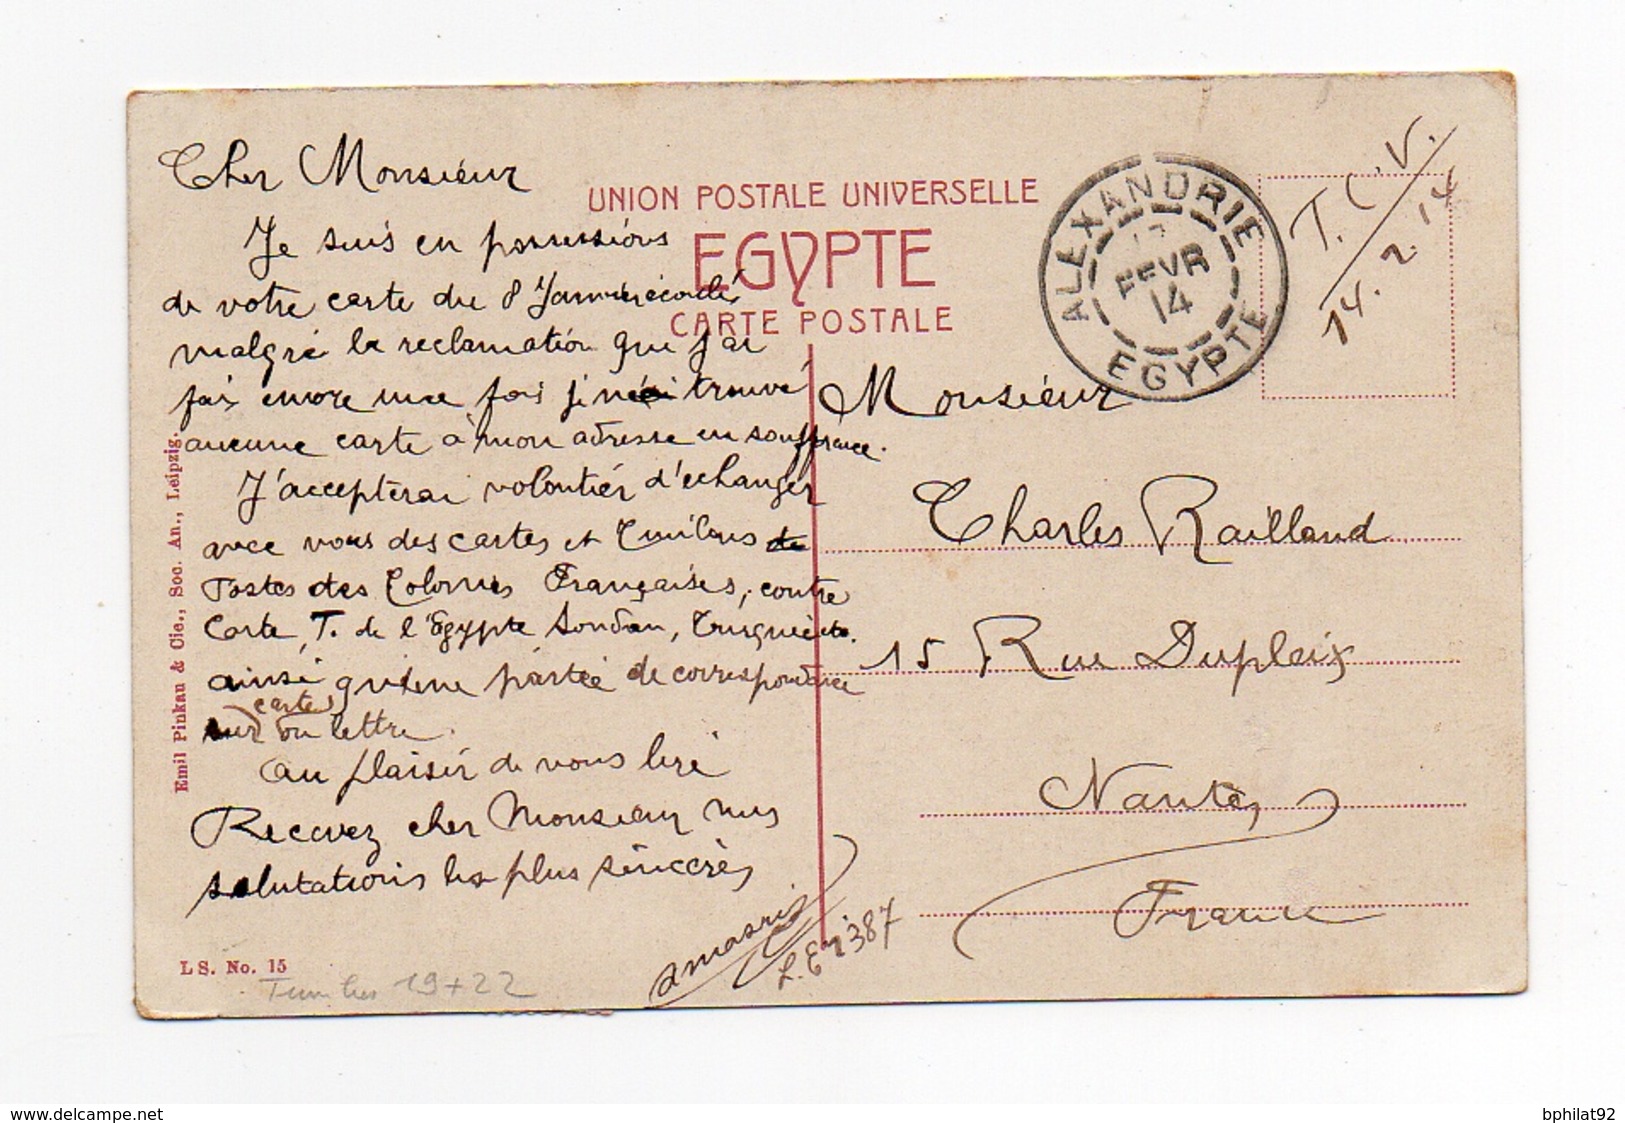 Cher Monsieur
Je suis en possessions
de votre carte du 8 Janvier écoulé,
malgré la reclamation que j'ai
fais encore une fois je n'ai trouvé
aucune carte à mon adresse en souffrance.
J'accepterai volontiér d'echanger
avec vous des cartes et Timbres de
Postes des Colonies Françaises, contre
Carte, T. de l'Egypte Soudan, Turquie etc.
ainsi partie de correspondance
carte
sur ou lettre.
Au plaisir de vous lire
Recevez cher Monsieur mes
salutations les plus sincères
UNION POSTALE UNIVERSELLE
EGYPTE
CARTE POSTALE
ALEXANDRIE
FEVR
14
EGYPTE
T.C.V.
14.2.14
Monsieur
Charles Railland
15 Rue Dupleix
Nantes
France
Emil Pinkau & Cie., Soc. An., Leipzig.
LS. No. 15
Timbres 19+22
387
www.delcampe.net
bphilat92